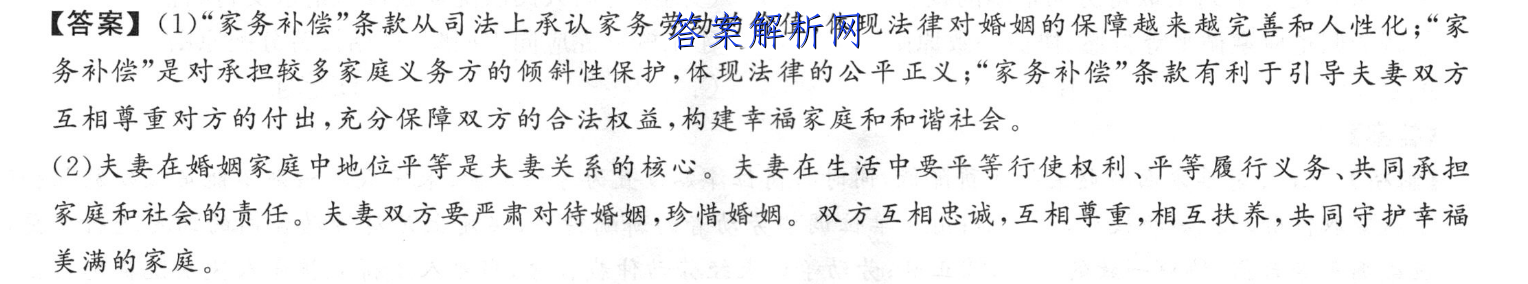 【答案】(1)“家务补偿”条款从司法上承认家务劳动的价值,体现法律对婚姻的保障越来越完善和人性化;“家
答案解析网
务补偿”是对承担较多家庭义务方的倾斜性保护,体现法律的公平正义;“家务补偿”条款有利于引导夫妻双方
互相尊重对方的付出,充分保障双方的合法权益,构建幸福家庭和和谐社会。
(2)夫妻在婚姻家庭中地位平等是夫妻关系的核心。夫妻在生活中要平等行使权利、平等履行义务、共同承担
家庭和社会的责任。夫妻双方要严肃对待婚姻,珍惜婚姻。双方互相忠诚,互相尊重,相互扶养,共同守护幸福
美满的家庭。